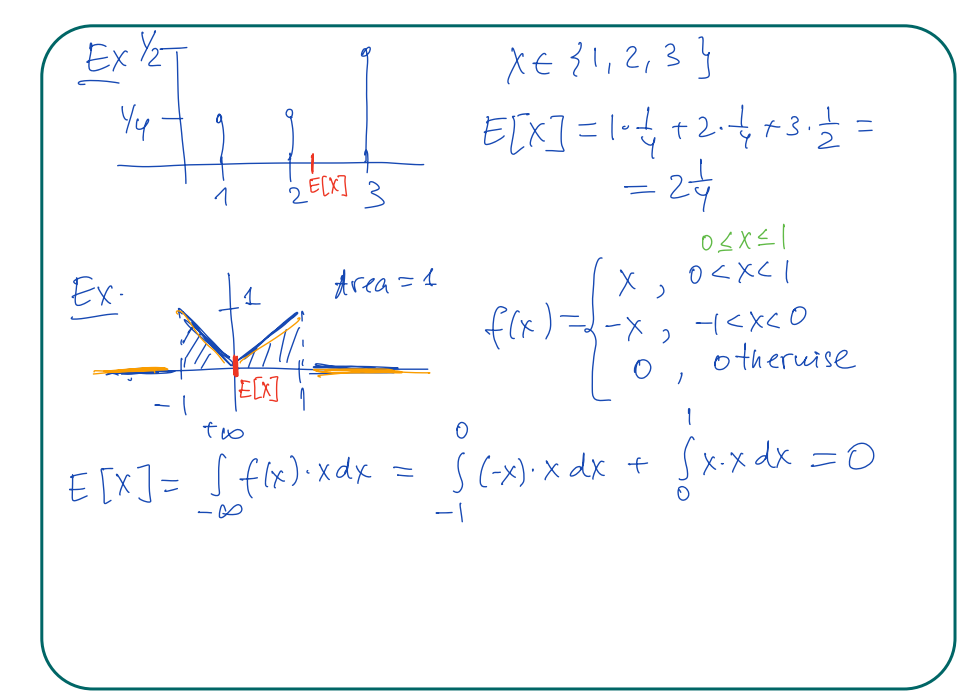 Ex 1/2
1/4
1 2 E[X] 3
X ∈ {1, 2, 3}
E[X] = 1·1/4 + 2·1/4 + 3·1/2 =
= 2 1/4
Ex.
1
Area = 1
-1 E[X] 1
0 ≤ x ≤ 1
f(x) = { x , 0 < x < 1
-x , -1 < x < 0
0 , otherwise
E[X] = ∫_{-∞}^{+∞} f(x)·x dx = ∫_{-1}^{0} (-x)·x dx + ∫_{0}^{1} x·x dx = 0